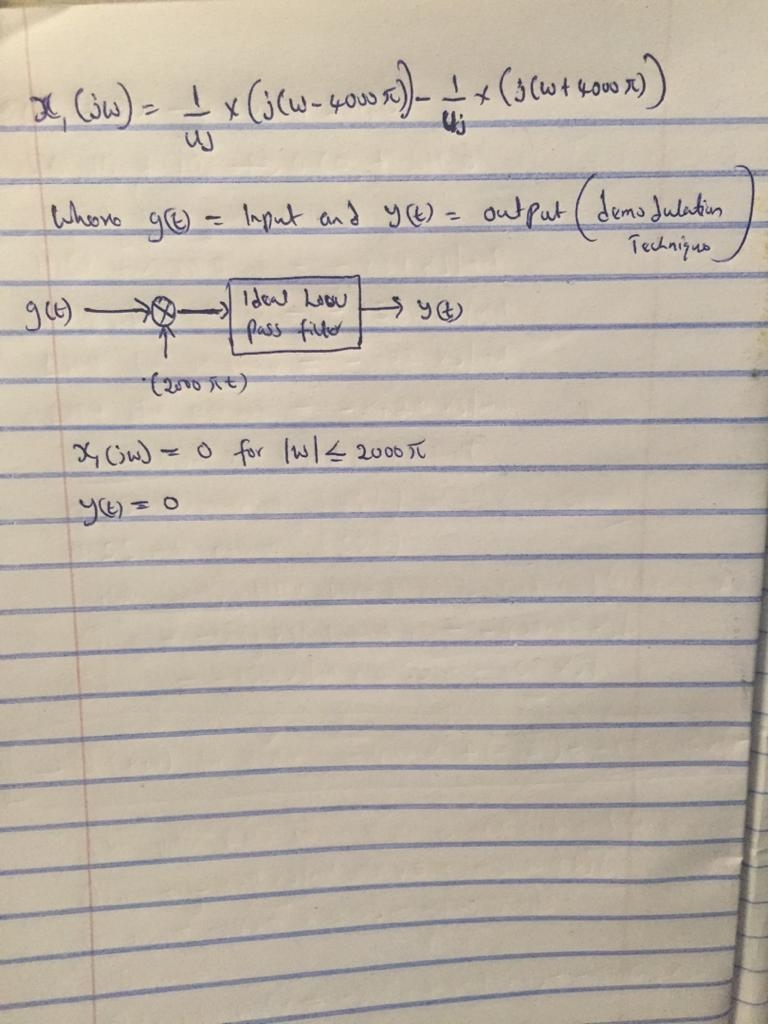 x₁(jω) = 1/4j x (j(ω - 4000π)) - 1/4j x (j(ω + 4000π))
Where g(t) = Input and y(t) = output (demodulation Technique)
g(t) → ⊗ → Ideal Low pass filter → y(t)
(2000πt)
x₁(jω) = 0 for |ω| ≤ 2000π
y(t) = 0